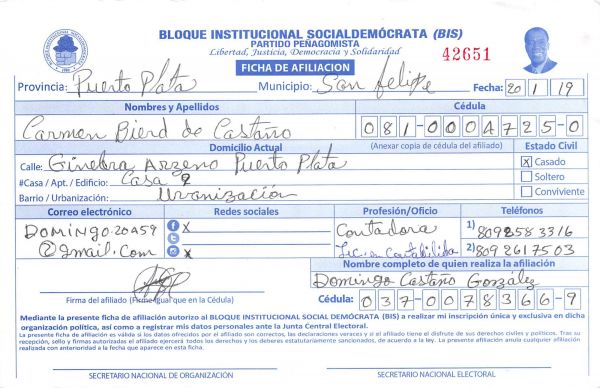 BLOQUE INSTITUCIONAL SOCIALDEMÓCRATA (BIS)
PARTIDO PEÑAGOMISTA
Libertad, Justicia, Democracia y Solidaridad
FICHA DE AFILIACION
42651
Provincia: Puerto Plata Municipio: San Felipe Fecha: 20 1 19
Nombres y Apellidos Cédula
Carmen Bierd de Castaño 081-0004725-0
Domicilio Actual (Anexar copia de cédula del afiliado) Estado Civil
Calle: Ginebra Arzeno Puerto Plata X Casado
#Casa / Apt. / Edificio: Casa 9 Soltero
Barrio / Urbanización: Urbanización Conviviente
Correo electrónico Redes sociales Profesión/Oficio Teléfonos
DOMINGO.20A59 X Contadora 1) 809 258 3316
@gmail.com X Lic. en Contabilida 2) 809 261 7503
Nombre completo de quien realiza la afiliación
Domingo Castaño González
Firma del afiliado (Firme igual que en la Cédula) Cédula: 037-0078366-9
Mediante la presente ficha de afiliación autorizo al BLOQUE INSTITUCIONAL SOCIAL DEMÓCRATA (BIS) a realizar mi inscripción única y exclusiva en dicha
organización política, así como a registrar mis datos personales ante la Junta Central Electoral.
La presente ficha de afiliación es válida si los datos ofrecidos por el afiliado son correctos, las declaraciones veraces y si el afiliado tiene el disfrute de sus derechos civiles y políticos. Tras su
recepción, sello y firmas autorizadas el afiliado ejercerá todos los derechos y los deberes estatutariamente sancionados, de acuerdo a la ley. La presente afiliación anula cualquier afiliación
realizada con anterioridad a la fecha que aparece en esta ficha.
SECRETARIO NACIONAL DE ORGANIZACIÓN SECRETARIO NACIONAL ELECTORAL